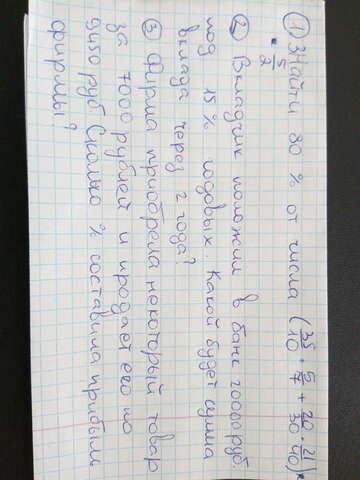 ① Найти 80 % от числа (35/10 · 5/7 + 20/30 · 21/40) ×
· 5/2
② Вкладчик положил в банк 20000 руб.
под 15 % годовых. Какой будет сумма
вклада через 2 года?
③ Фирма приобрела некоторый товар
за 7000 рублей и продает его по
9450 руб Сколько % составила прибыль
фирмы?